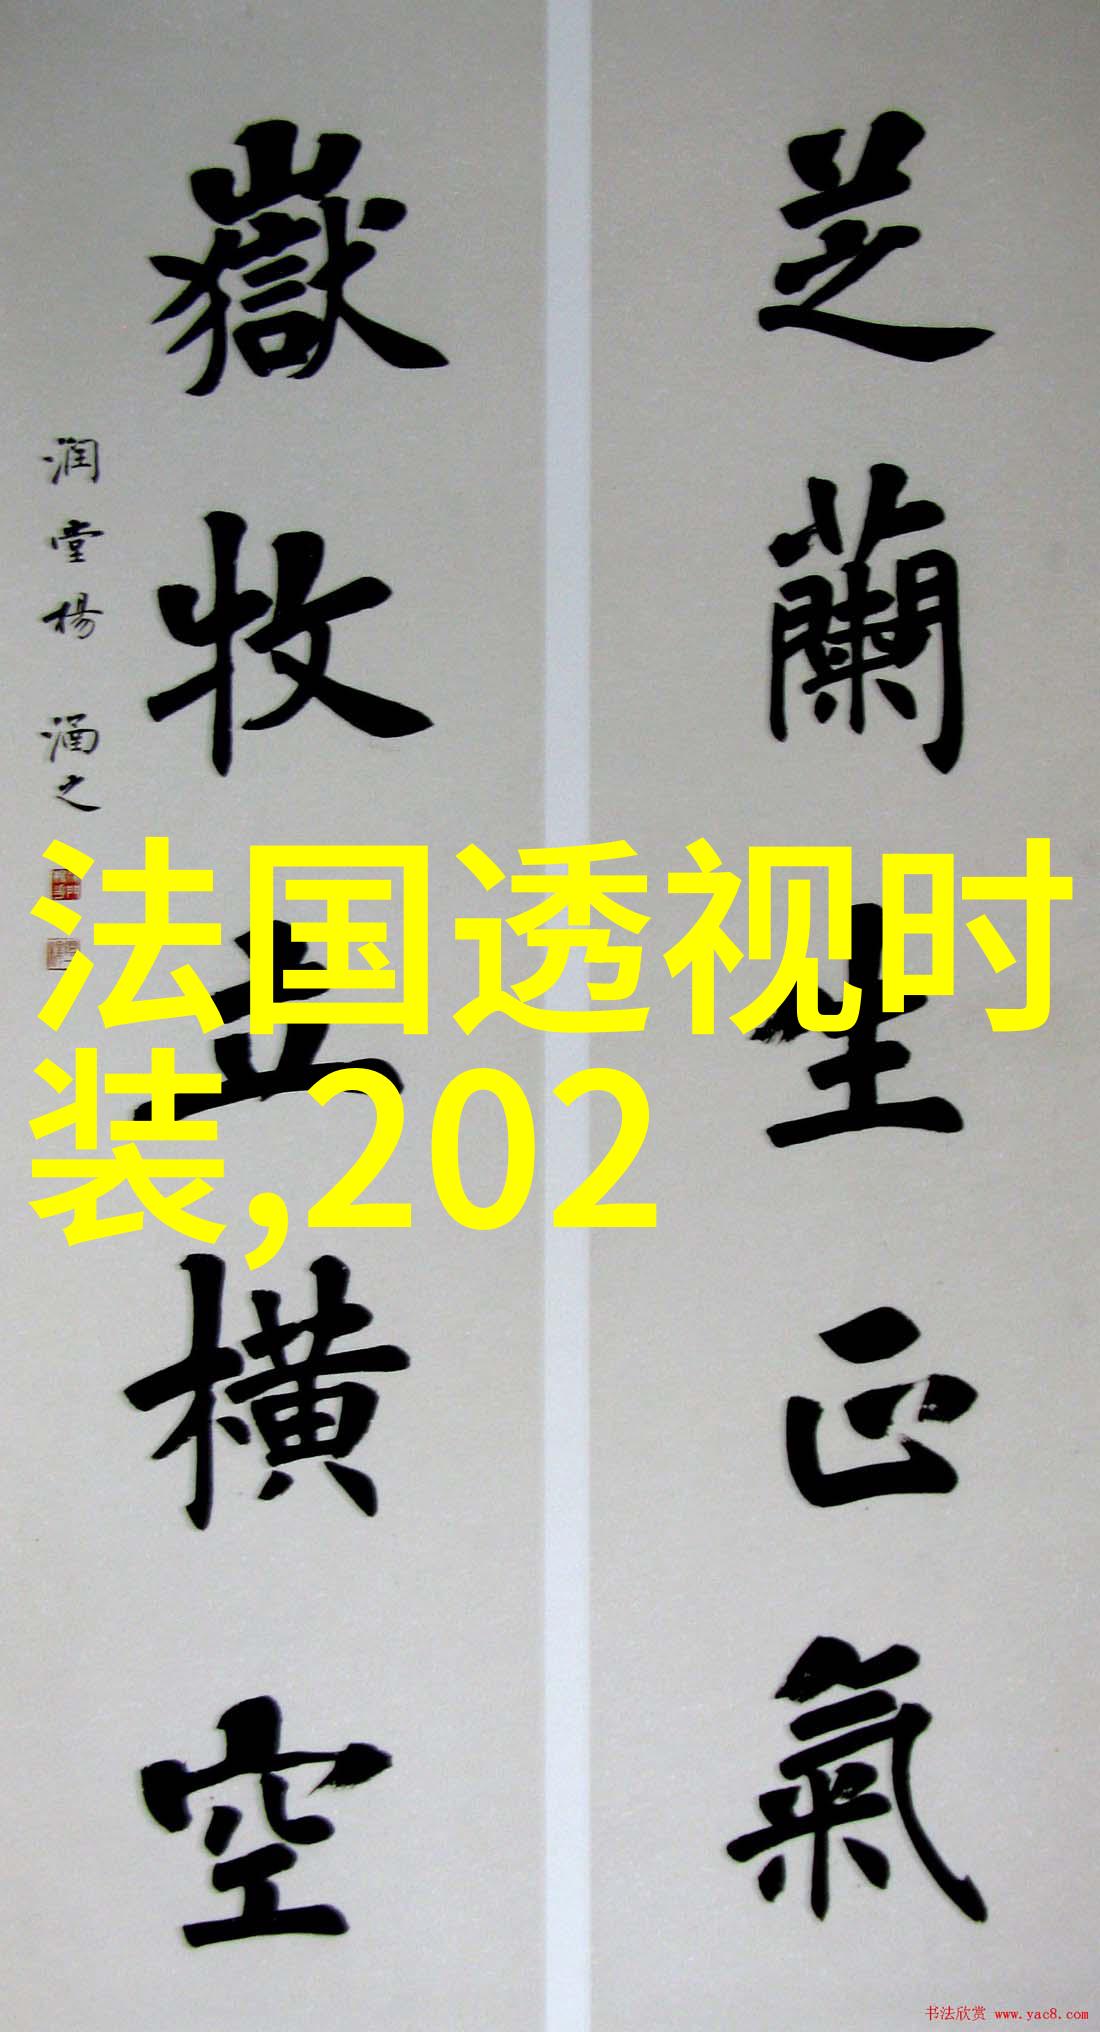 芝蘭生正氣
嶽牧立橫空
润堂楊涵之
法国透视时
装,202
书法欣赏 www.yac8.com